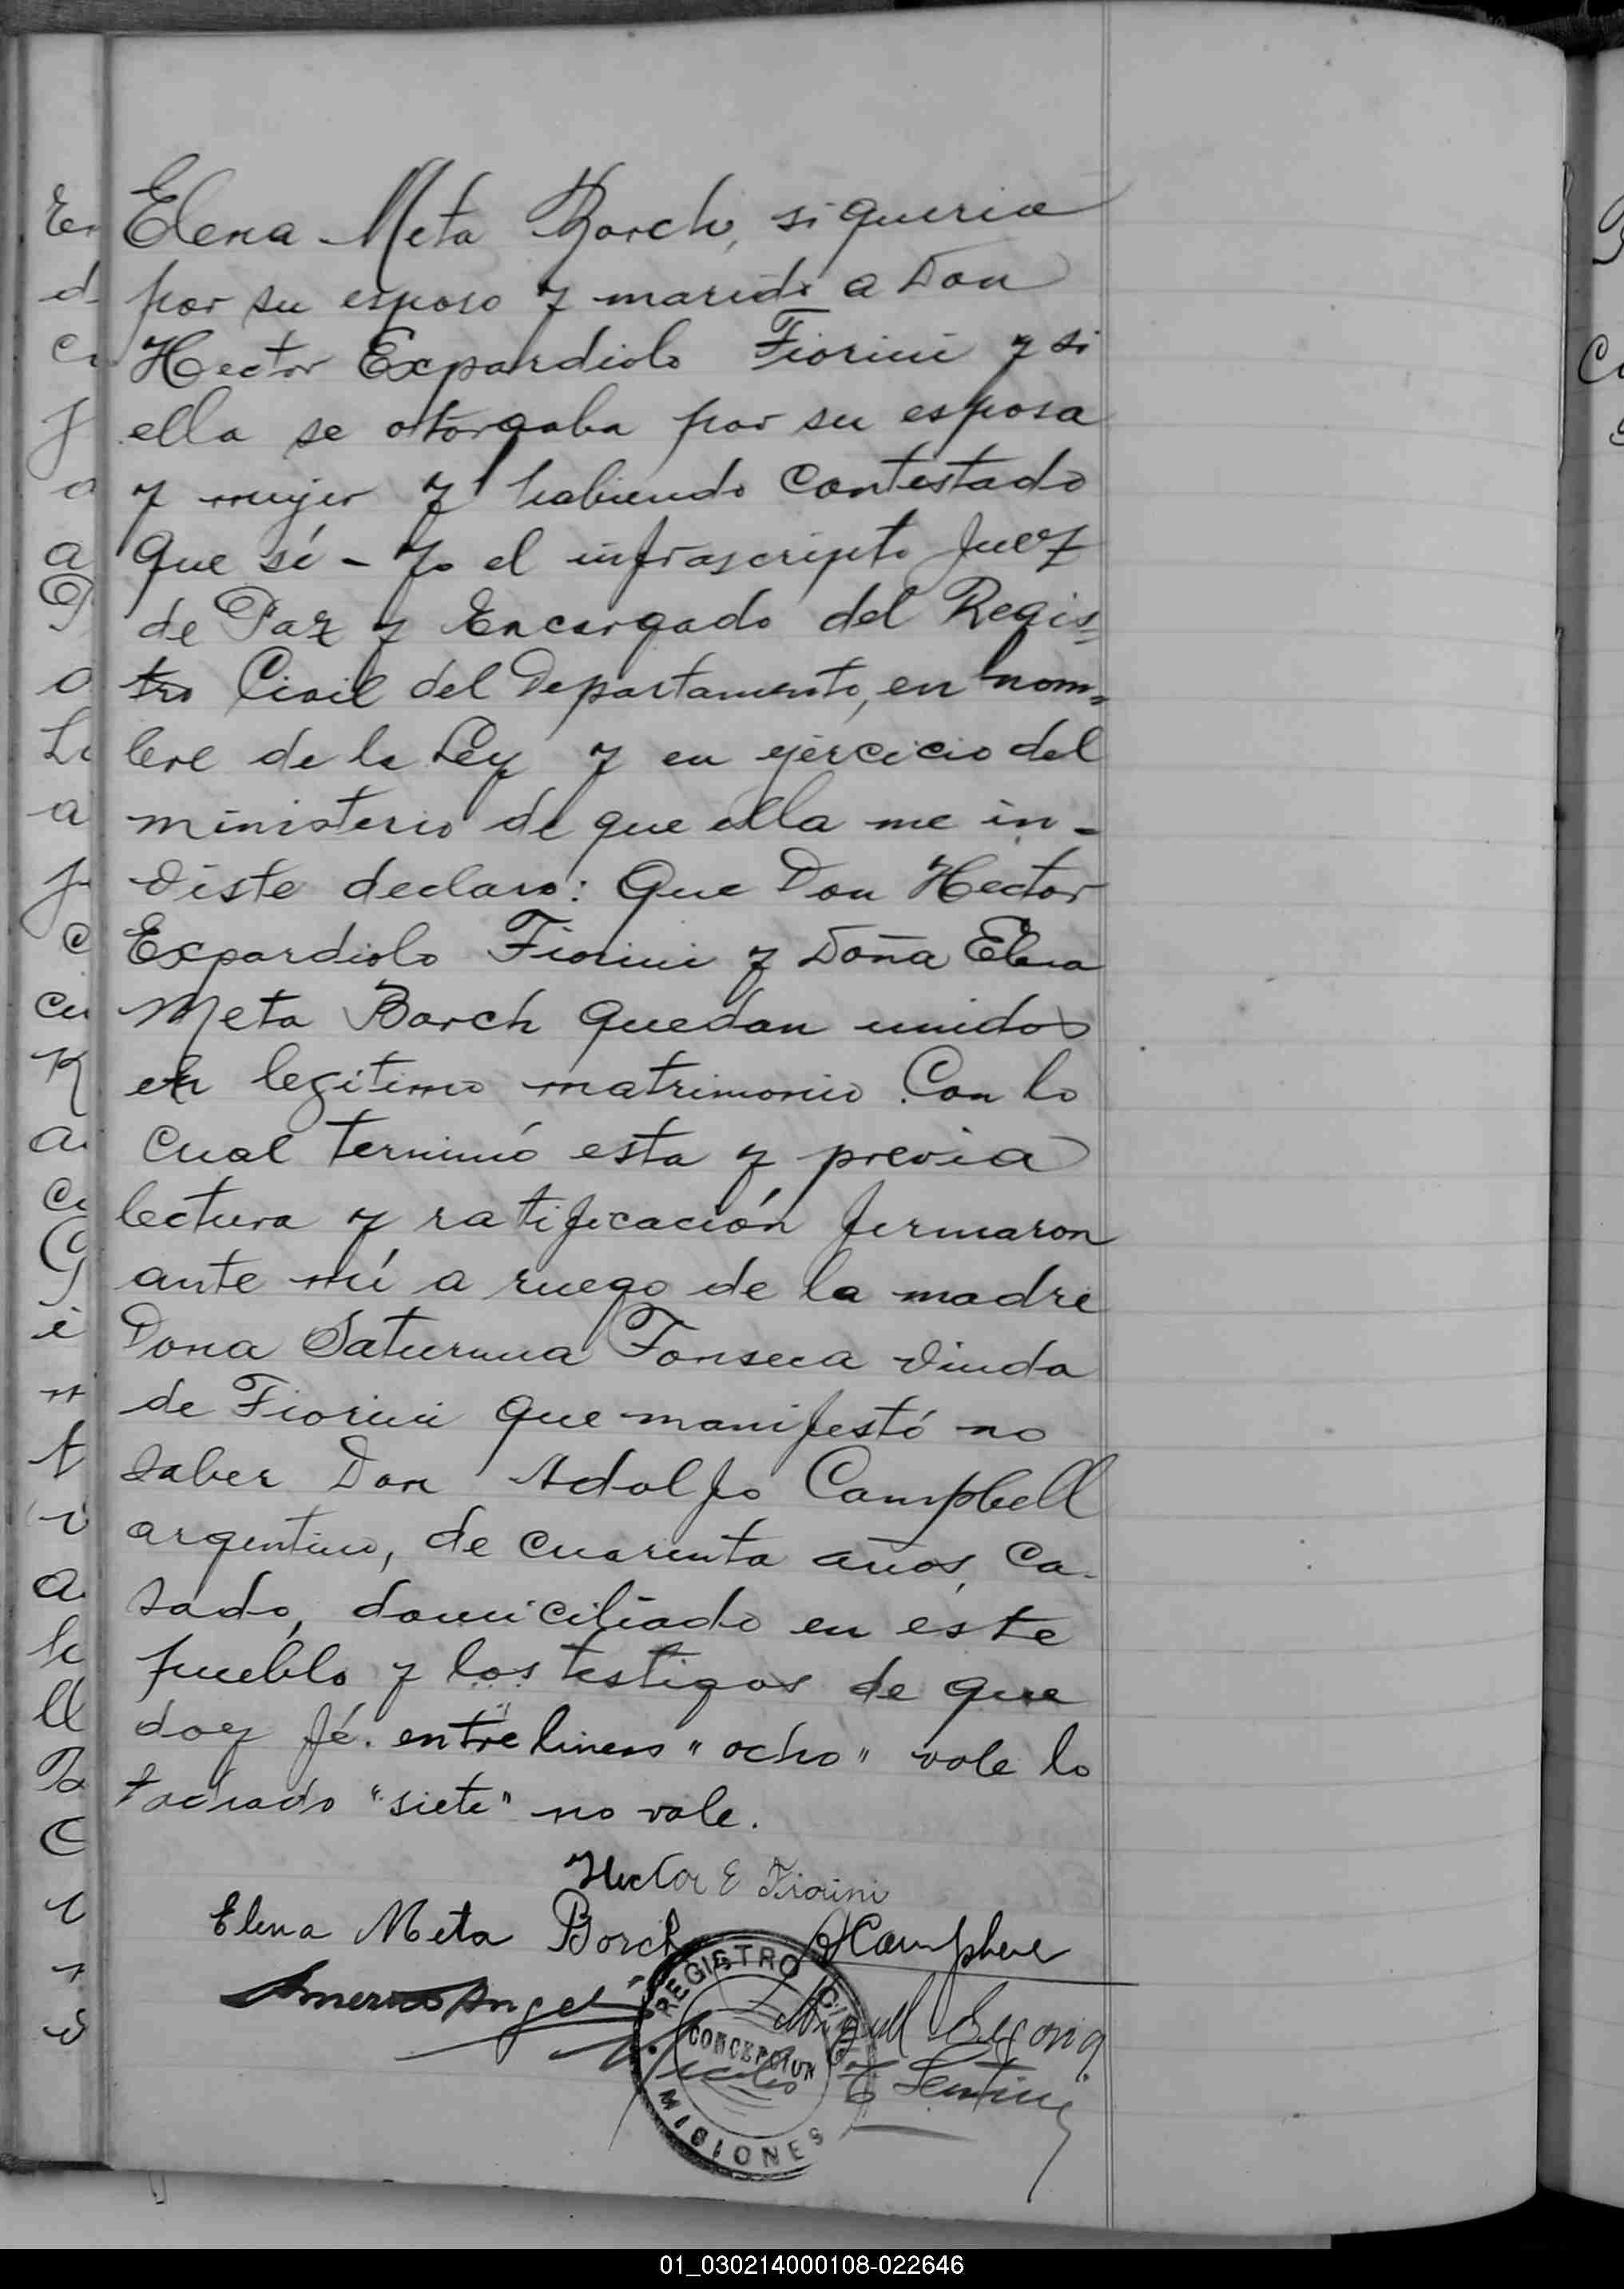 Elena Meta Borch, si queria
por su esposo y marido a Don
Hector Expardiolo Fiorini y si
ella se otorgaba por su esposa
y mujer y habiendo contestado
que sí – Yo el infrascripto Juez
de Paz y Encargado del Regis=
tro Civil del Departamento, en nom=
bre de la Ley y en ejercicio del
ministerio de que ella me in-
viste declaro: Que Don Hector
Expardiolo Fiorini y Doña Elena
Meta Borch quedan unidos
en legitimo matrimonio. Con lo
cual terminó esta y previa
lectura y ratificación firmaron
ante mí a ruego de la madre
Dona Saturnina Fonseca viuda
de Fiorini que manifestó no
saber Don Adolfo Campbell
argentino, de cuarenta años, ca-
sado, domiciliado en este
pueblo y los testigos de que
doy fé. entre lineas "ocho" vale lo
tachado "siete" no vale.
Hector E Fiorini
Elena Meta Borch
A Campbell
Angel
REGISTRO CIVIL
CONCEPCION
MISIONES
01_030214000108-022646